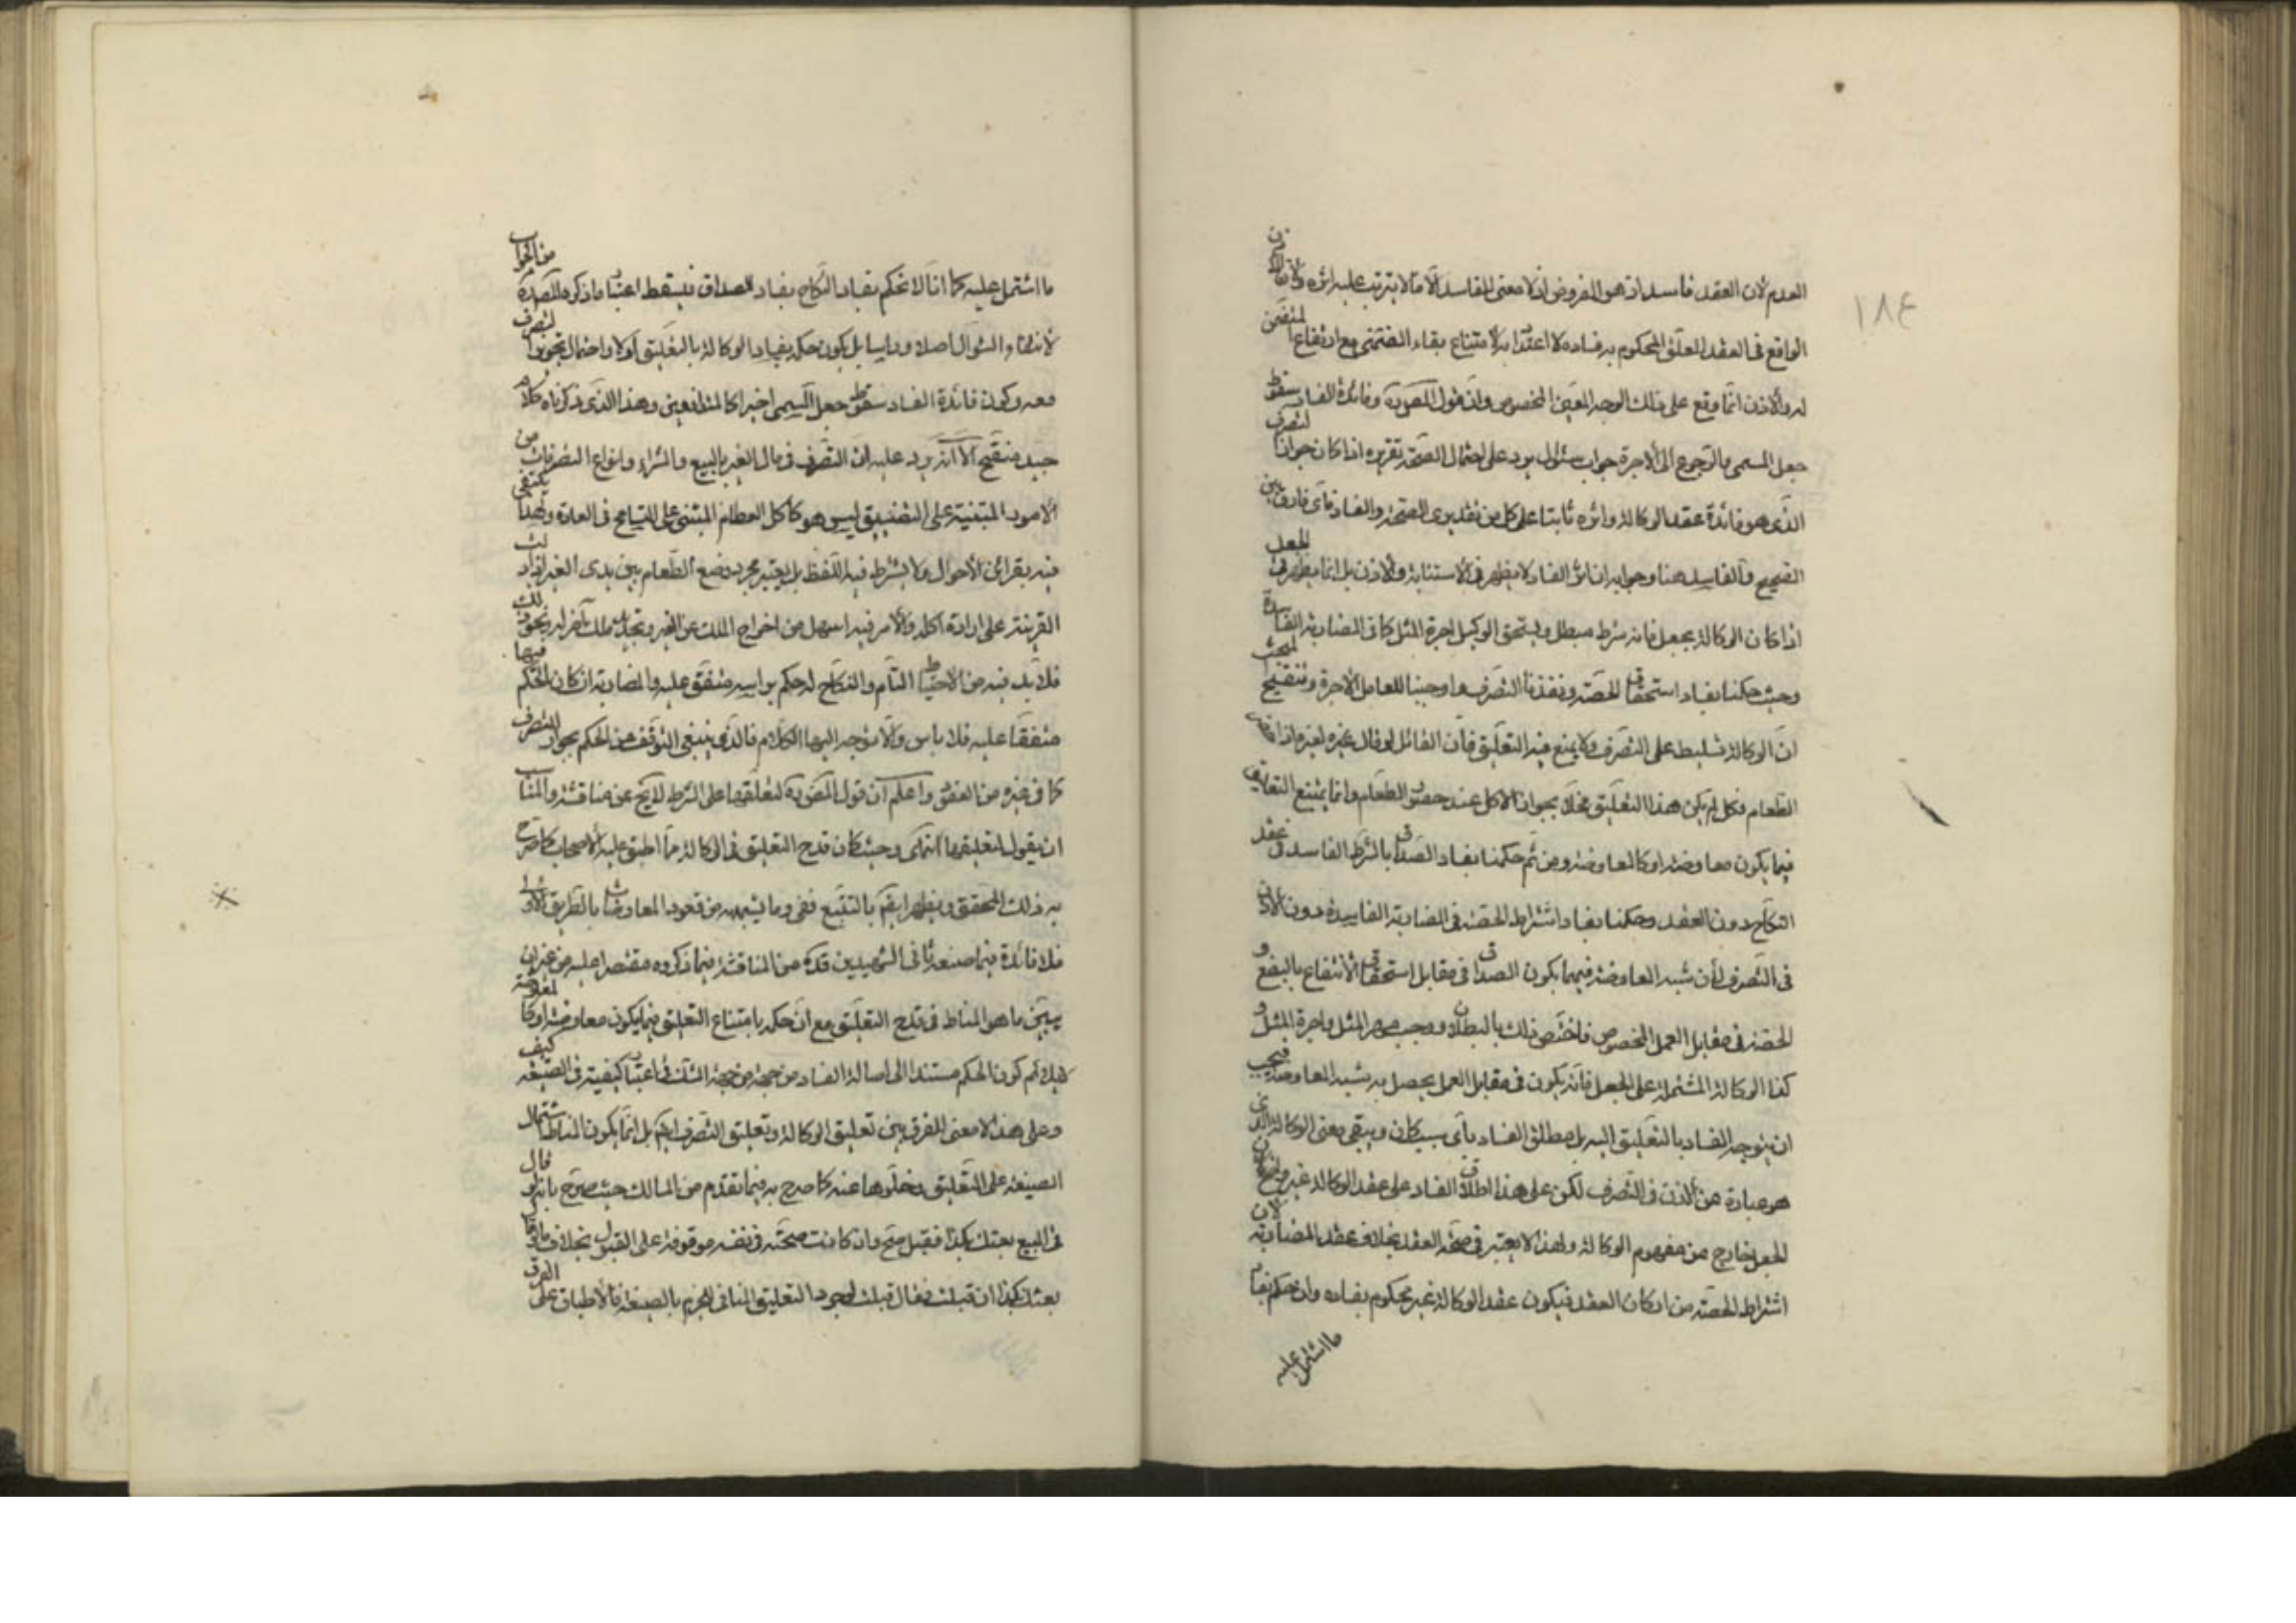 ١٨٤
العدم لان العقد فاسد اذ هو المفروض اذ لا معنى للفاسد الا ما لا يترتب عليه اثره ولان الاذن
الواقع في العقد المعلق المحكوم بفساده لا اعتداد به لامتناع بقاء الضمني مع ارتفاع المتضمن
له والاذن انما وقع على ذلك الوجه المعين المخصوص وان قول المص وفائدة الفساد سقوط
جعل المسمى والرجوع الى الاجرة جواب سئوال يرد على احتمال الصحة تقريره اذا كان جواز التصرف
الذي هو فائدة عقد الوكالة واثره ثابتا على كل من تقديري الصحة والفساد فاي فارق بين
الصحيح والفاسد هنا وجوابه ان اثر الفساد لا يظهر في الاستنابة والاذن بل انما يظهر في الجعل
اذا كان الوكالة بجعل فانه شرط مبطل ويستحق الوكيل اجرة المثل كما في المضاربة الفاسدة
وحيث حكمنا بفساد استحقاق الحصة ونفذنا التصرف واوجبنا للعامل الاجرة وتنقيح المبحث
ان الوكالة تسليط على التصرف ولا يمنع فيه التعليق فان القائل لو قال غيره لغيره اذا
الطعام فكل لم يكن هذا التعليق مخلا بجواز الاكل عند حضور الطعام وانما يمتنع التعليق
فيما يكون معاوضة او كالمعاوضة ومن ثم حكمنا بفساد الصداق بالشرط الفاسد في عقد
النكاح دون العقد وحكمنا بفساد اشتراط الحصة في المضاربة الفاسدة دون الاذن
في التصرف لان شبه المعاوضة فيهما بكون الصداق في مقابل استحقاق الانتفاع بالبضع و
الحصة في مقابل العمل المخصوص فاختص ذلك بالبطلان ووجب مهر المثل واجرة المثل و
كذا الوكالة المشتملة على الجعل فانه يكون في مقابل العمل يحصل به شبه المعاوضة فيجب
ان يتوجه الفساد بالتعليق اليه بل مطلق الفساد باي سبب كان ويبقى معنى الوكالة الذي
هو عبارة عن الاذن في التصرف لكن على هذا اطلاق الفساد على عقد الوكالة غير
الجعل خارج عن مفهوم الوكالة ولهذا لا يعتبر في صحة العقد بخلاف عقد المضاربة لان
اشتراط الحصة من اركان العقد فيكون عقد الوكالة غير محكوم بفساده وان حكم بفساد
ما اشتمل عليه
ما اشتمل عليه كما انا لا نحكم بفساد النكاح بفساد الصداق فيسقط اعتبار ما ذكره المص من الجواب
لانتفاء السئوال اصلا وراسا بل يكون حكمه بفساد الوكالة بالتعليق اولا واحتمال تجويز التصرف
معه وكون فائدة الفساد سقوط جعل المسمى اخيرا كالمتدافعين وهذا الذي ذكرناه كلام
جيد منقح الا انه يرد عليه ان التصرف في مال الغير بالبيع والشراء وانواع التصرفات من
الامور المبتنية على التضييق ليس هو كاكل الطعام المبتنى على التسامح في العادة ولهذا يكتفى
فيه بقرائن الاحوال ولا يشترط فيه اللفظ بل يعتبر مجرد وضع الطعام بين يدي الغير اذا دلت
القرينة على ارادة اكله والامر فيه اسهل من اخراج الملك عن الغير وتجديد ملك آخر له ونحو ذلك
فلا بد فيه من الاحتياط التام والنكاح له حكم براسه متفق عليه والمضاربة ان كان الحكم فيها
متفقا عليه فلا باس والا توجه اليها الكلام فالذي ينبغي التوقف عن الحكم بجواز التصرف
كما في غيره من العقود واعلم ان قول المص لتعلقها على الشرط لا يخ عن مناقشة والمناسب
ان يقول لتعليقها انتهى وحيث كان قدح التعليق في الوكالة مما اطبق عليه الاصحاب كما صرح
به ذلك المحقق ويظهر ايضا بالتتبع ففي وما يشبهه من عقود المعاوضات بالطريق الاولى
فلا فائدة فيما صنعه ثاني الشهيدين قده من المناقشة فيما ذكروه مقتصرا عليه من غير ان
يبين ما هو المناط في قدح التعليق مع ان حكمه بامتناع التعليق فيما يكون معاوضة او كالمعاوضة
كون الحكم مستندا الى اصالة الفساد من جهة الشك في اعتبار كيفية في الصيغة كيف
وعلى هذا لا معنى للفرق بين تعليق الوكالة وتعليق التصرف بل انما يكون المناط اشتمال
الصيغة على التعليق وخلوها عنه كما صرح به فيما تقدم من المسالك حيث صرح بانه لو قال
في البيع بعتك بكذا فقبل صح وان كانت صحته في نفسه موقوفة على القبول بخلاف ما لو قال
بعتك بكذا ان قبلت فقال قبلت لوجود التعليق المنافي للجزم بالصيغة فالاطباق على الفرق